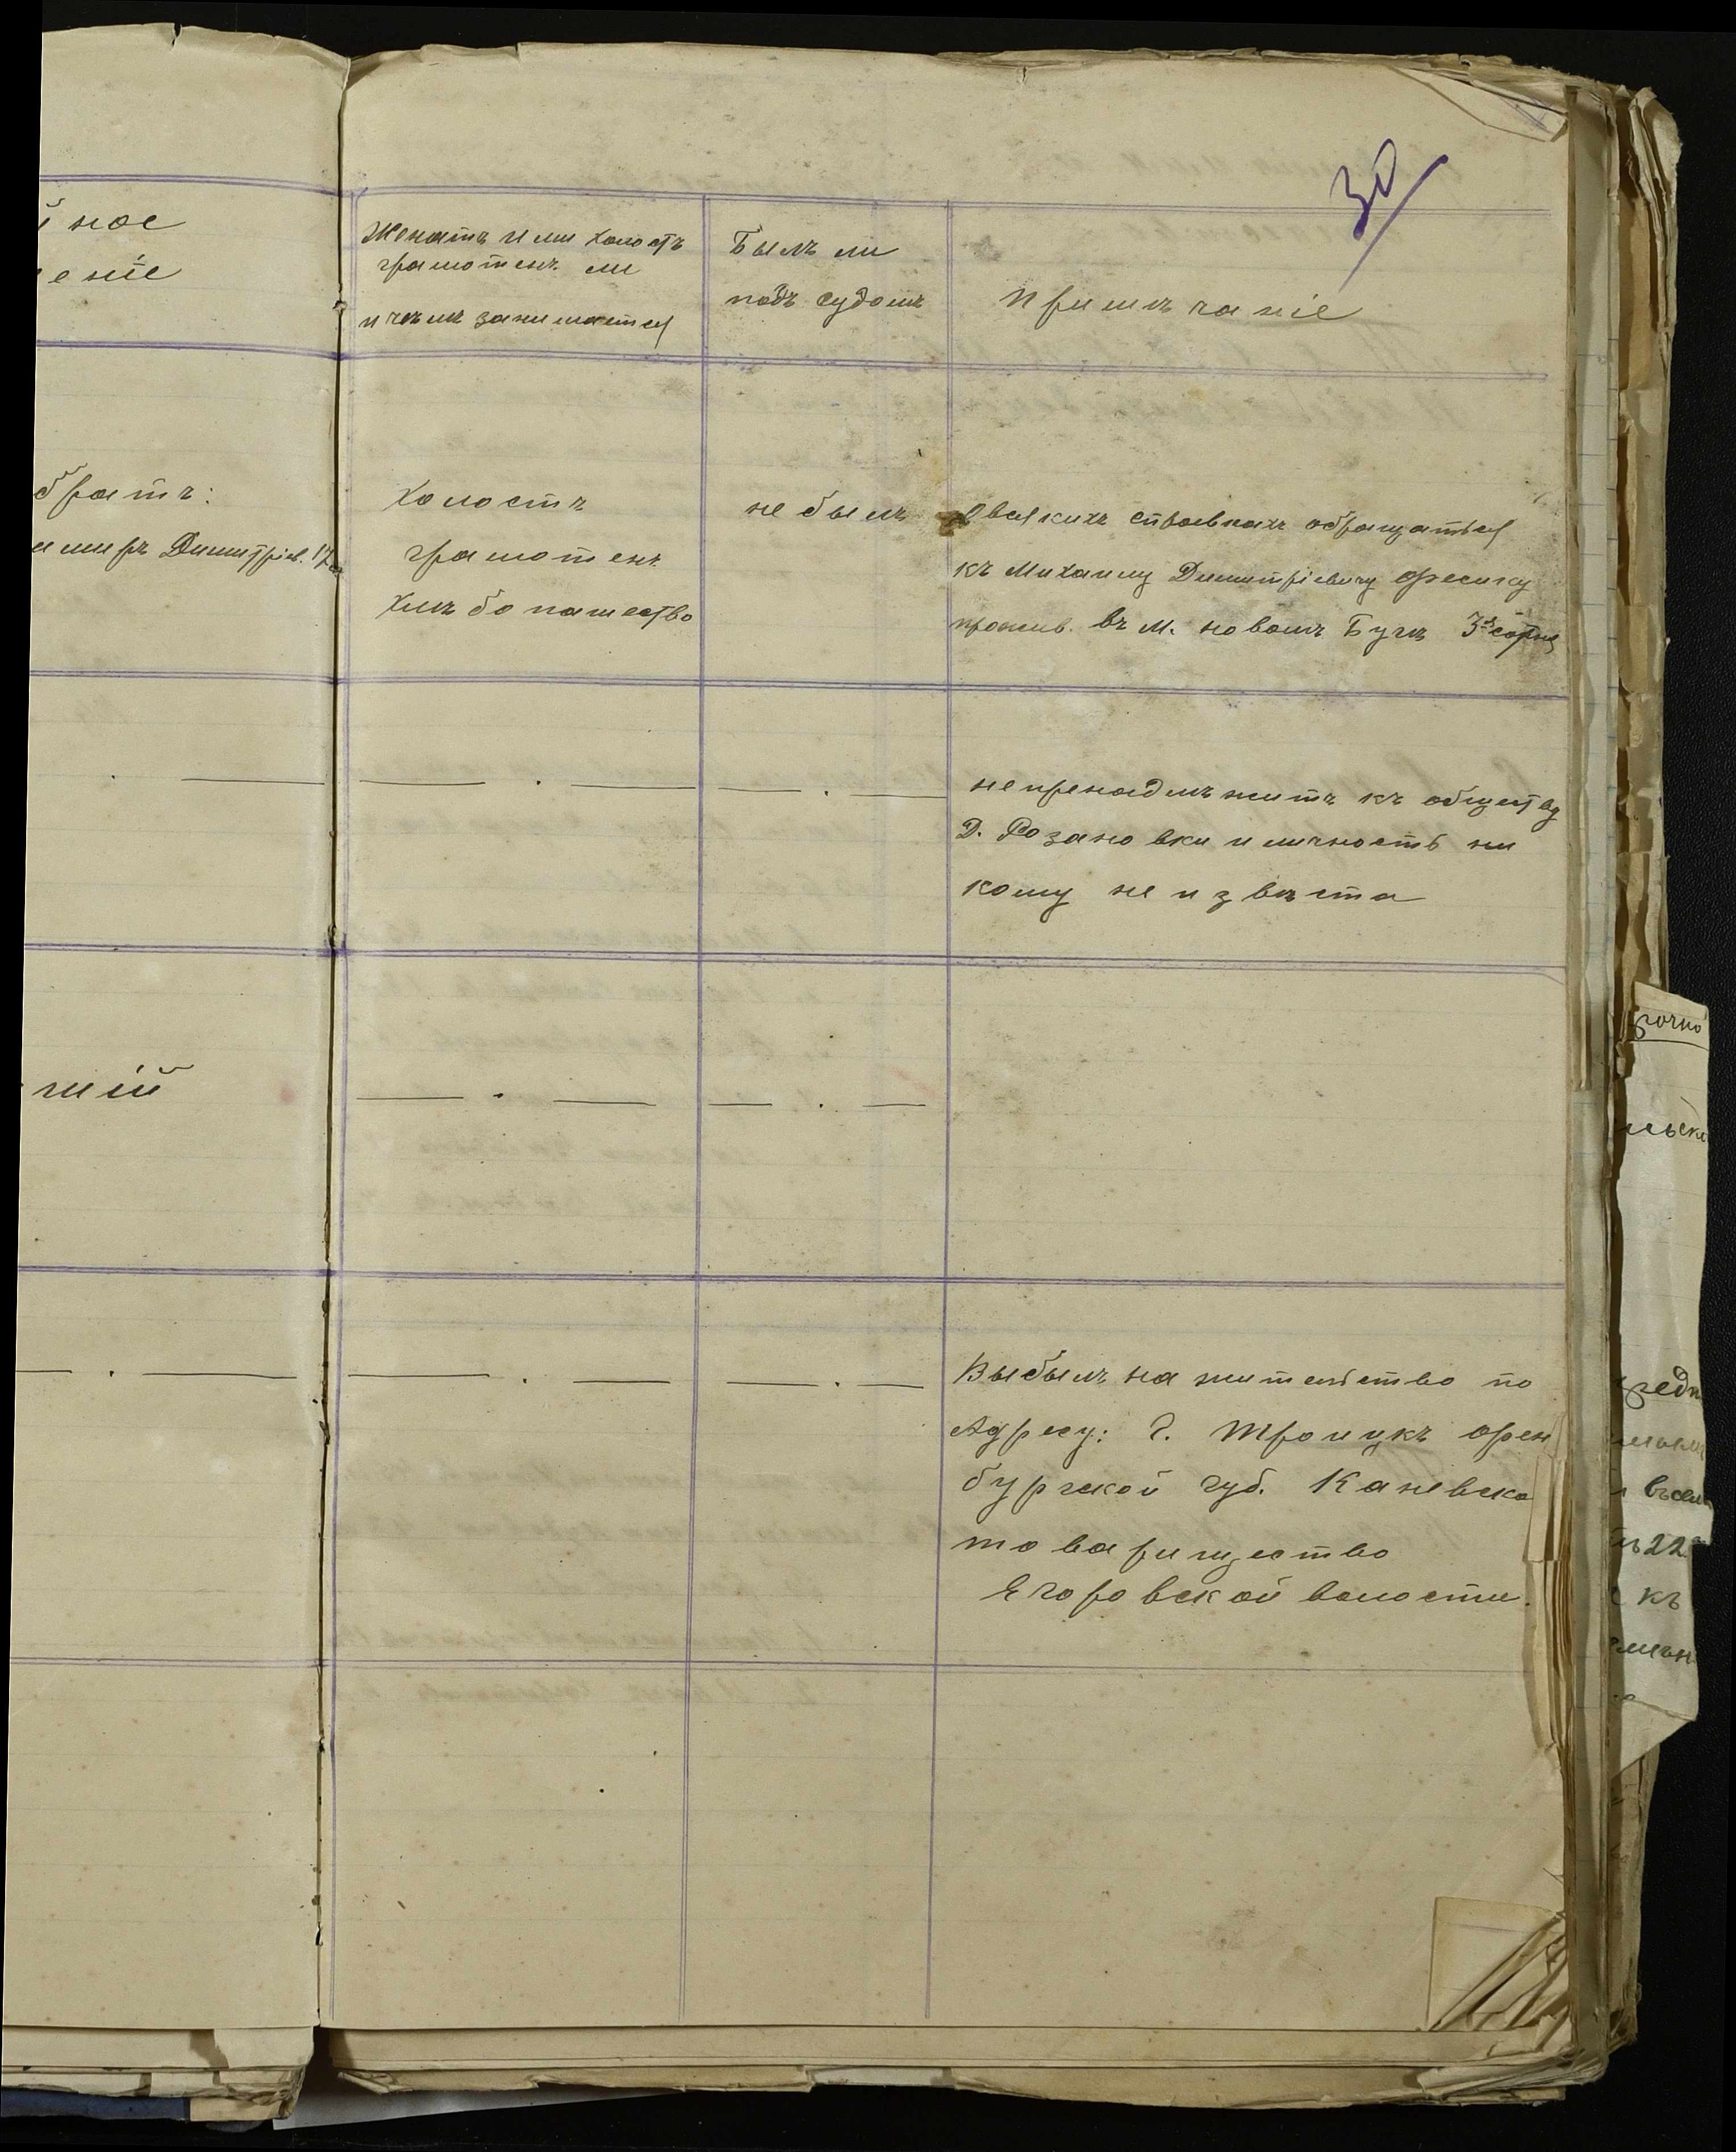 30
ное
ение
Женатъ или холостъ
грамотенъ ли
и чѣмъ занимается
Былъ ли
подъ судомъ
Примѣчаніе
братъ:
димиръ Димитріев. 17
Холостъ
грамотенъ
Хлѣбопашество
не былъ
О всякихъ справкахъ обращаться
къ Михаилу Димитріевичу
прожив. въ М. новомъ Бугѣ 3й сотня
непренадлѣжитъ къ обществу
Д. Розановки и личность ни
кому не извѣста
гій
Выбылъ на жительство по
Адресу: г. Троицкъ Орен
бургской губ. Каневско
товарищество
Егоровской волости.
рочно
22
къ